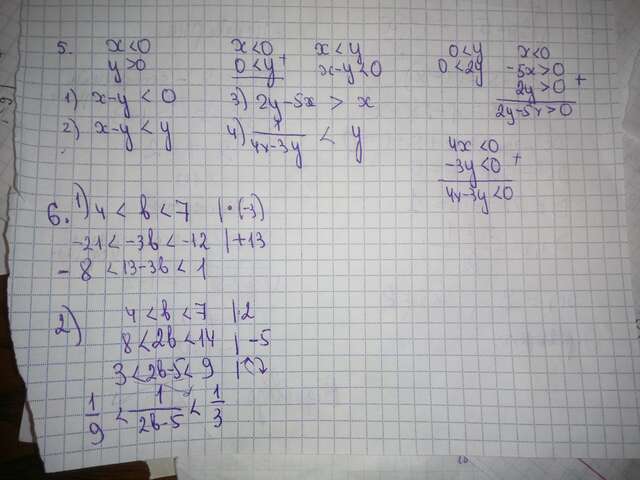 5. x<0
y>0
1) x-y<0
2) x-y<y
x<0
0<y +
3) 2y-5x > x
4) 1/(4x-3y) < y
x<y
x-y<0
0<y
0<2y
x<0
-5x>0
2y>0 +
2y-5x>0
4x<0
-3y<0 +
4x-3y<0
6. 1) 4<b<7 |·(-3)
-21<-3b<-12 |+13
-8<13-3b<1
2) 4<b<7 |·2
8<2b<14 |-5
3<2b-5<9 |
1/9 < 1/(2b-5) < 1/3